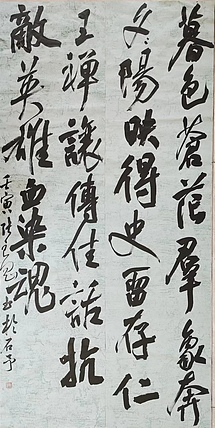 暮色蒼茫羣象奔
夕陽映得史留存仁
王禪讓傳佳話抗
敵英雄血染魂
壬寅 書於石